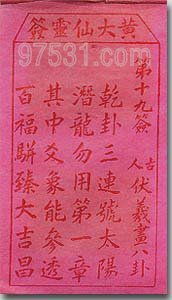 黃大仙靈簽
97531.com
第十九簽
古人 伏羲畫八卦
乾卦三連號太陽
潛龍勿用第一章
其中爻象能參透
百福駢臻大吉昌